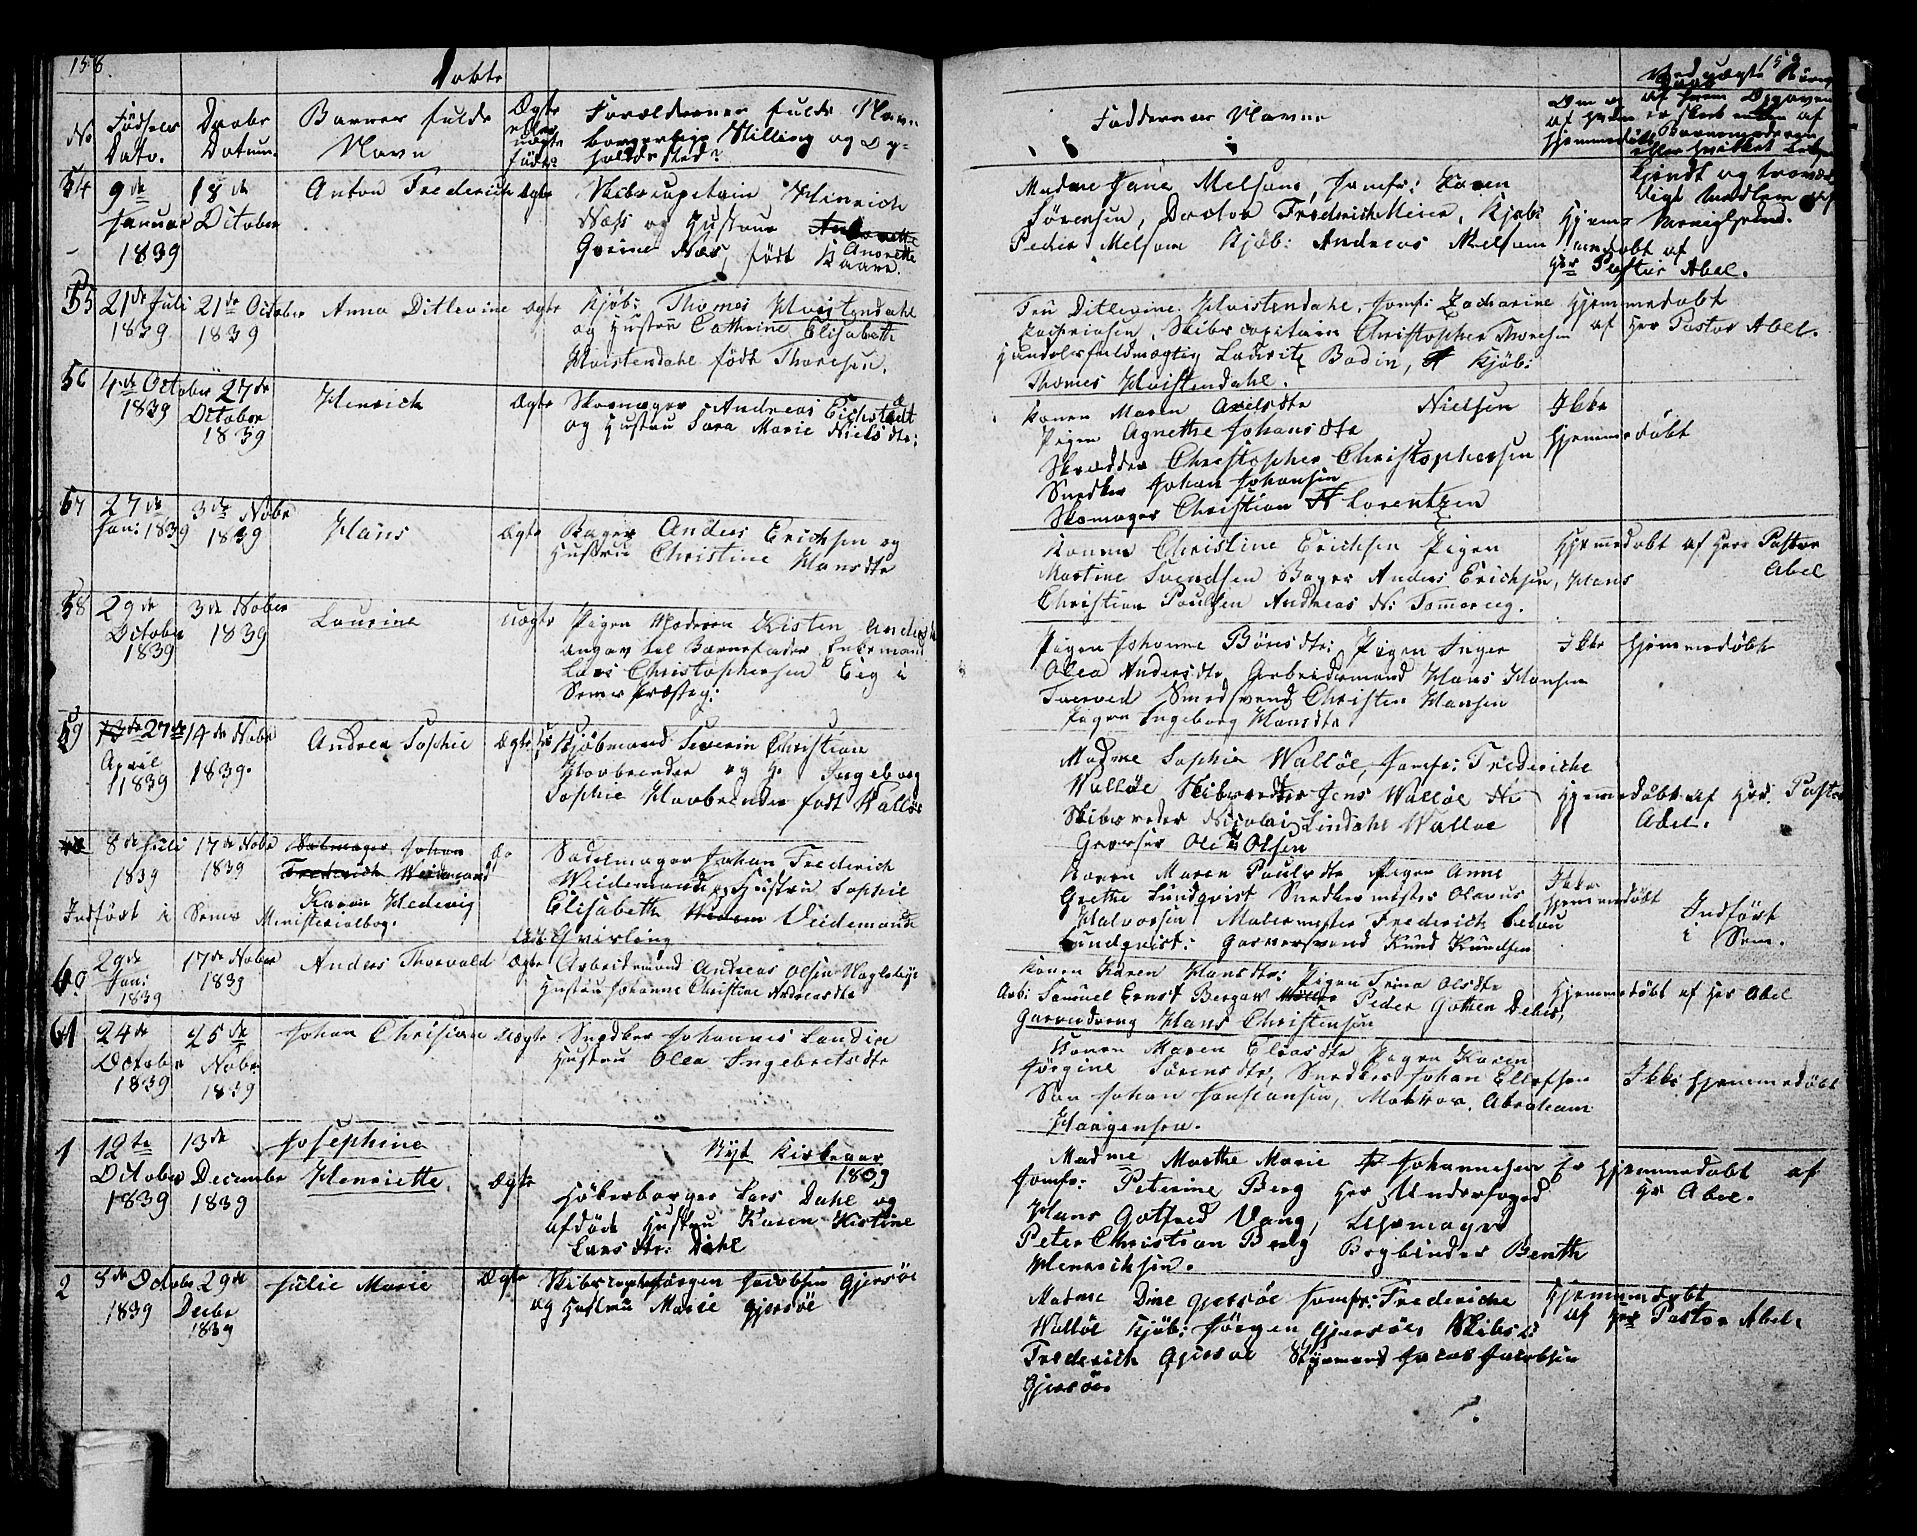 158.
Døbte
No
Fødsels Dato.
Daabs Datum.
Barnets fulde Navn
Ægte eller uægte født?
Forældrenes fulde Navn borgerlige Stilling og Opholdsted?
54
9de Januar 1839
18de October
Anton Frederich
Ægte
Skibscapitain Hinrich
Næss og Hustrue
Grine Næs, født Kaare.
Anorette
55
21de Juli 1839
21de October 1839
Anna Ditlevine
Ægte
Kjøb: Thomes Hvistendahl
og Hustru Cathrine Elisabeth
Hvistendahl født Thoresen.
56
4de October 1839
27de October 1839
Henrich
Ægte
Skomager Andreas Eichstædt
og Hustru Sara Marie Nielsdtr:
57
27de Jan: 1839
3de Novbr 1839
Hans
Ægte
Bager Anders Erichsen og
Hustru Christine Hansdtr
58
29de October 1839
3de Nober 1839
Laurine
Uægte
Pigen Moderen Kisten Andersdt
angav til Barnefader Enkemand
Lars Christophersen Eig i
Sems Præsteg:
59
27de April 1839
14de Nobr 1839.
Andrea Sophie
Ægte
Kjøbmand Severin Christian
Hovbrender og H. Ingeborg
Sophie Hovbrender født Walløe
8de Juli 1839
17de Nobr 1839
Salmager Johan
Frederich Weidemand
Karen Hedevig
Do
Sadelmager Johan Frederich
Weidemand og Hustru Sophie
Elisabeth Veidemand
født Qvisling
Indført i Sems Ministerialbog.
60
29de Jan: 1839
17de Nober 1839
Anders Thorvald
Ægte
Arbeidsmand Andreas Olsen Haglebye
Hustru Johanne Christine Andreasdtr
61
24de October 1839
25de Nobr 1839
Johan Chrisian
Uægte
Snedker Johannes Landin
Hustru Olea Ingebretsdtr
Nyt Kirkeaar 1839
1
12te October 1839
13de December 1839
Josephine Henriette
Ægte
Høkerborger Lars Dahl og
afdøde Hustru Karen Kistine
Larsdtr: Dahl
2
5de Octobr 1839
29de Decbr 1839
Julie Marie
Ægte
Skibscaptn Jørgen Jacobsen Gjersøe
og Hustru Marie Gjersøe
159
Faddernes Navne
Om og af hvem Hjemmedøbt
Madme Jane Melsom, Jomfr: Karen
Sørensen, Doctor Fredrich Meier, Kjøb:
Peder Melsom Kjøb: Andreas Melsom
Hjemmedøbt af
Hr Pastor Abel.
Fru Ditlevine Hvistendahl, Jomfr: Zacharine
Zachriasen, Skibscapitain Christopher Thoresen
Handelsfuldmægtig Lauritz Bodin, Kjøb:
Thomes Hvistendahl.
Hjemmedøbt
af Her Pastor Abel.
Konen Maren Axelsdtr Nielsen
Pigen Agnethe Johansdtr
Skrædder Christopher Christophersen
Snedker Johan Johansen
Skomager Christian Lorentzen
Ikke
Hjemmedøbt
Konen Christine Erichsen Pigen
Martine Svendsen Bager Anders Erichsen, Hans
Christian Poulsen Andreas N: Tommereg.
Hjemmedøbt af Herr Pastor
Abel
Pigen Johanne Børrsdtr: Pigen Inger
Olea Andersdtr Arbeidsmand Hans Hansen
Tverved Smedsvend Christen Hansen
Pigen Ingeborg Hansdtr
Ikke Hjemmedøbt
Madme Sophie Walløe, Jomfr: Frederiche
Walløe Skibsreder Jens Walløe
Skibsreder Nicolai Lindahl Walløe
Garver Ole Olsen
Hjemmedøbt af Her. Pastor
Abel.
Konen Maren Paulsdtr Pigen Anne
Grethe Lundqvist Snedkermester Olavus
Halvorsen Malermester Frederich
Lundqvist: Garversvend Knud Knudsen
Ikke
Hjemmedøbt
Indført
i Sem.
Konen Karen Hansdtr: Pigen Trina Olsdtr
Arb: Samuel Ernst Bergan Peder Gothen Dehli,
Garverdreng Hans Christensen
Hjemmedøbt af Her Abel
Konen Maren Eliasdtr Pigen Karen
Jørgine Sørensdtr, Snedker Johan Ellefsen
Søn Johan Johansen, Matros Abraham
Haagensen.
Ikke Hjemmedøbt
Madme Marthe Marie Johannesen
Jomfr: Peterine Berg Her Underfoged
Hans Gotfred Vang, Lysmager
Peter Christian Berg Bogbinder Benth
Henrichsen.
Er Hjemmedøbt af
Hr Abel.
Madme Dine Gjersøe Jomfr: Frederiche
Walløe Kjøb: Jørgen Gjersøe, Skibs:
Frederich Gjersøe Styrmand Jacob Jacobsen
Gjersøe
Hjemmedøbt
af Her Pastor Abel.